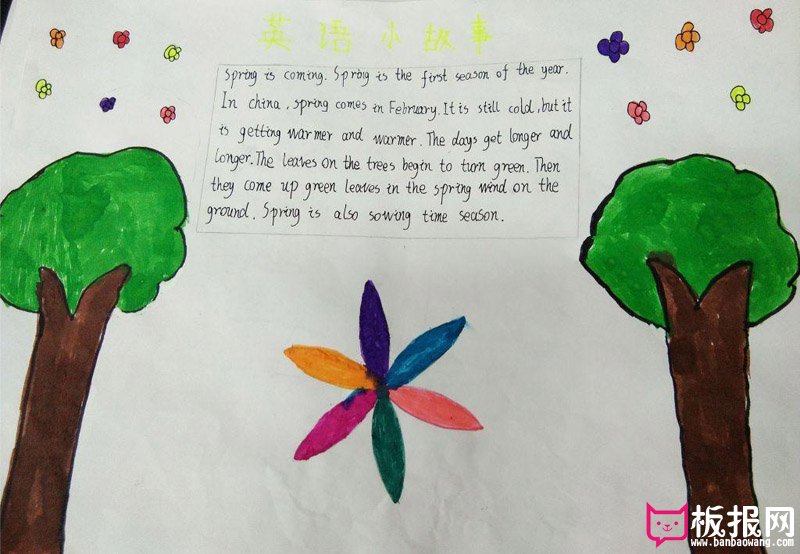 英语小故事
Spring is coming. Spring is the first season of the year.
In china, spring comes in February. It is still cold, but it
is getting warmer and warmer. The days get longer and
longer. The leaves on the trees begin to turn green. Then
they come up green leaves in the spring wind on the
ground. Spring is also sowing time season.
板报网
www.banbaowang.com